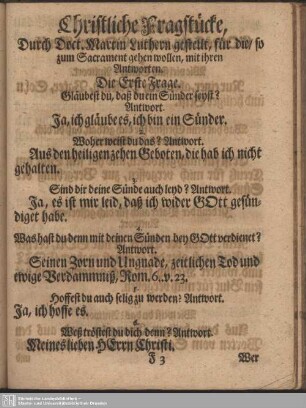 Christliche Fragstücke,
Durch Doct. Martin Luthern gestellt, für die/ so
zum Sacrament gehen wollen, mit ihren
Antworten.
Die Erste Frage.
Gläubest du, daß du ein Sünder seyst?
Antwort.
Ja, ich gläube es, ich bin ein Sünder.
2.
Woher weist du das? Antwort.
Aus den heiligen zehen Geboten, die hab ich nicht
gehalten.
3.
Sind dir deine Sünde auch leyd? Antwort.
Ja, es ist mir leid, daß ich wider GOtt gesün-
diget habe.
4.
Was hast du denn mit deinen Sünden bey GOtt verdienet?
Antwort.
Seinen Zorn und Ungnade, zeitlichen Tod und
ewige Verdammniß, Rom. 6. v. 23.
5.
Hoffest du auch selig zu werden? Antwort.
Ja, ich hoffe es.
6.
Weß tröstest du dich denn? Antwort.
Meines lieben HErrn Christi.
F 3 Wer